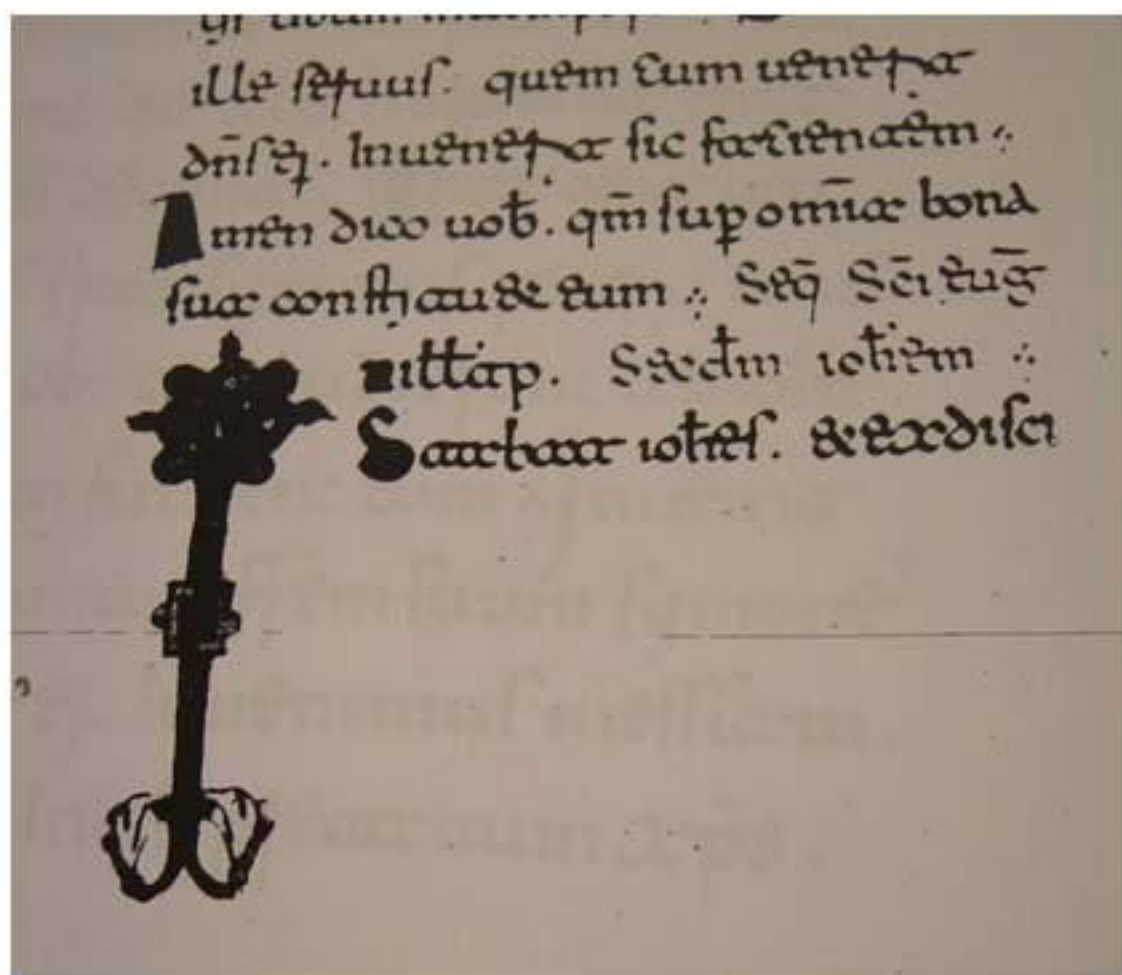 ille seruus. quem cum uenerit
dn̄s ei. Inuenerit sic facientem
Amen dico uob̄. qm̄ sup om̄ia bona
sua constituet eum Seq̄ Sc̄i euḡ
Secdm̄ ioh̄em
Stabat ioh̄es. & ex disci